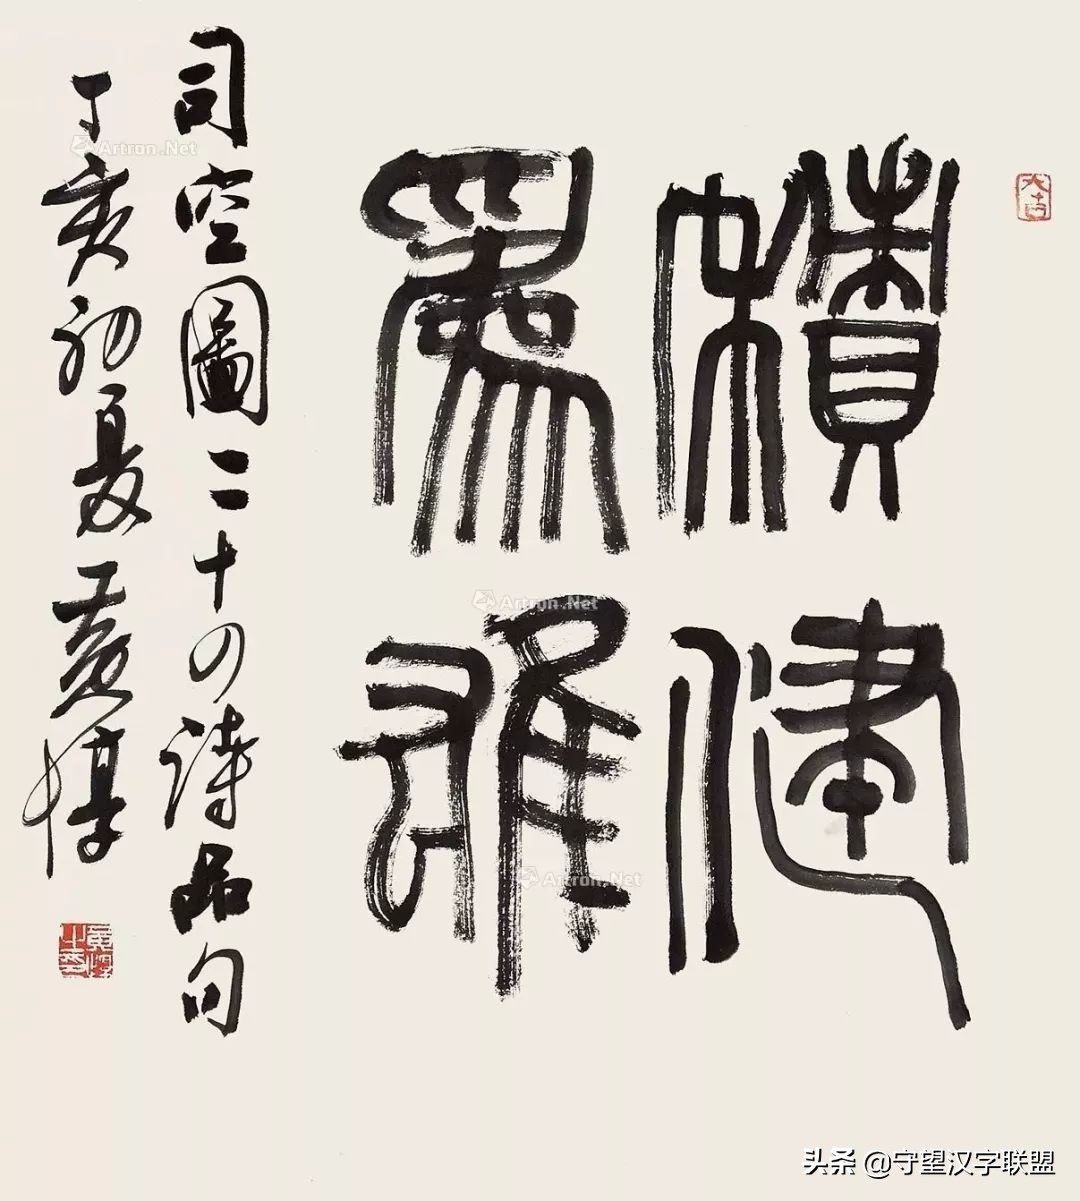 積健
為雄
司空圖二十四詩品句
丁亥初夏黃惇
Artron.Net
Artron.Net
Artron.Net
头条 @守望汉字联盟